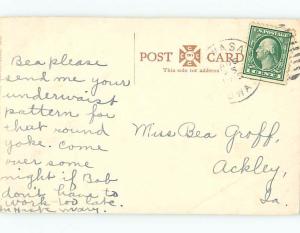 Bea please
send me your
underwaist
pattern for
that round
yoke. Come
over some
night if Bob
don't have to
work too late.
POST CARD
This side for address
U.S. POSTAGE
Miss Bea Groff,
Ackley,
Ia.